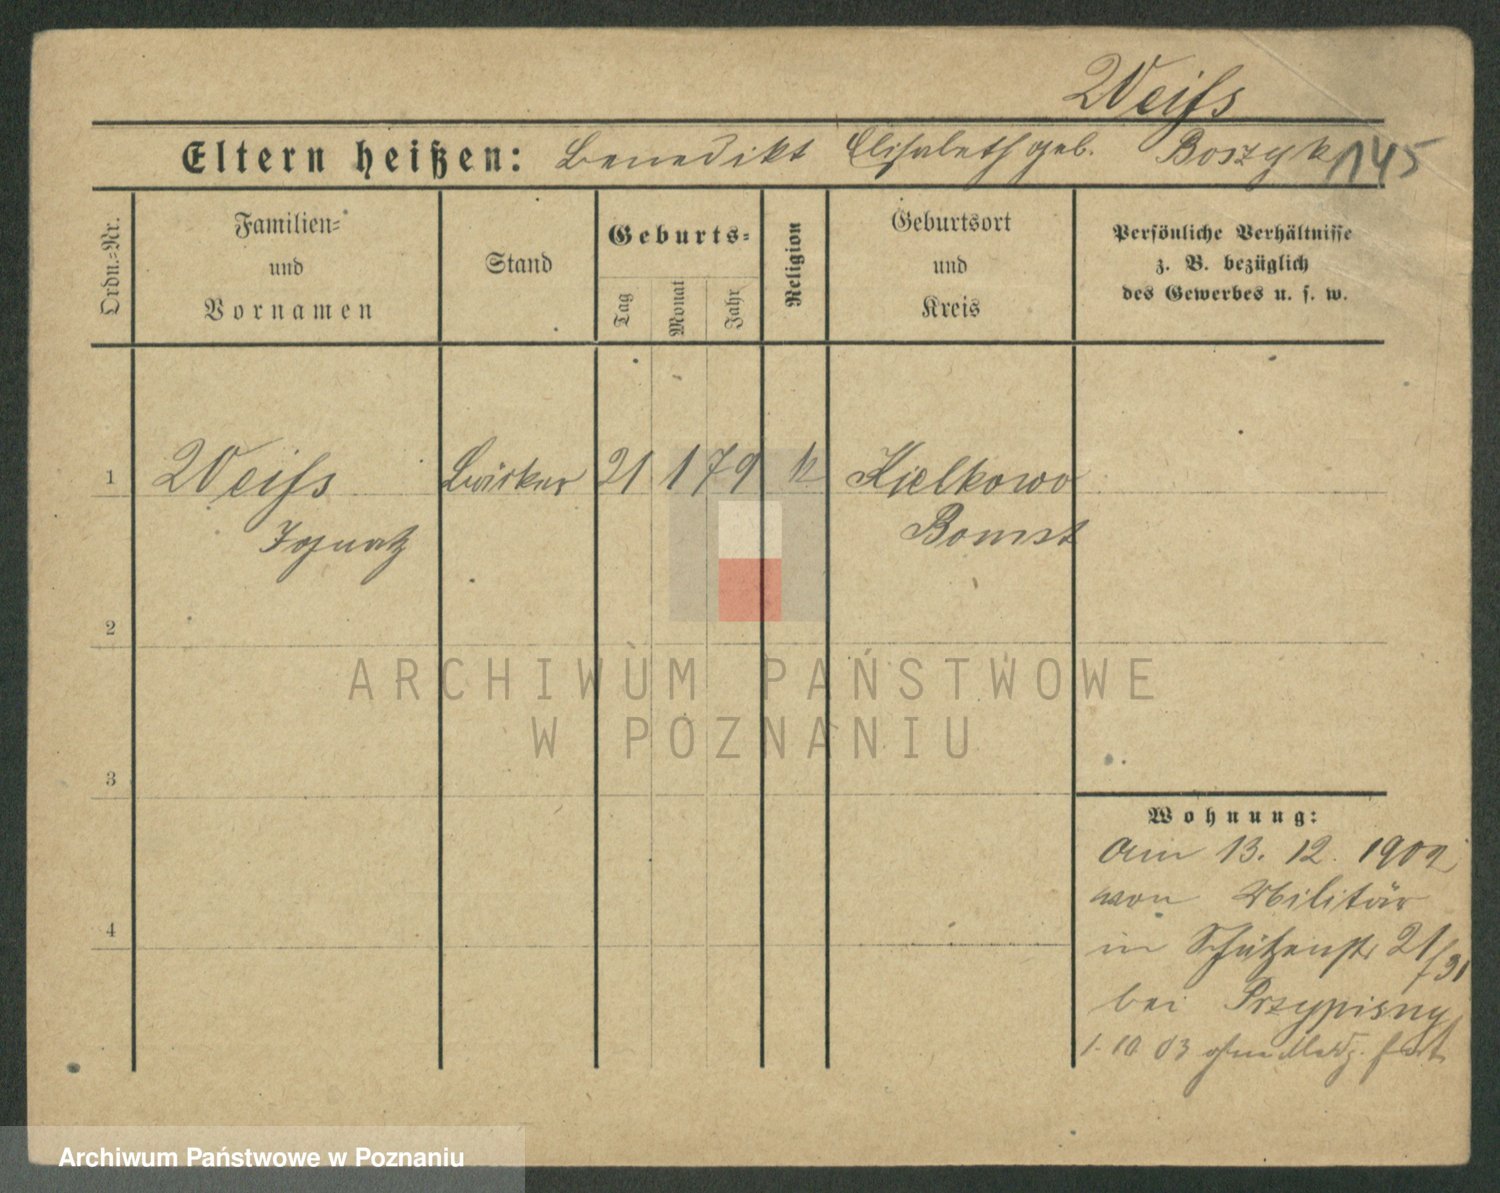 Weiſs
Eltern heißen: Benedikt Elisabeth geb. Boszyk 145
Ordn.-Nr.
Familien-
und
Vornamen
Stand
Geburts-
Tag
Monat
Jahr
Religion
Geburtsort
und
Kreis
Persönliche Verhältnisse
z. B. bezüglich
des Gewerbes u. s. w.
1 Weiſs Bäcker 21 1 79 k Kielkowo
Ignatz Bomst
2
ARCHIWUM PAŃSTWOWE
W POZNANIU
3
Wohnung:
Am 13. 12. 1902
von Militär
4
in Schützenstr 21/31
bei Przypisny
1. 10 03 ohne Meldg. fort
Archiwum Państwowe w Poznaniu